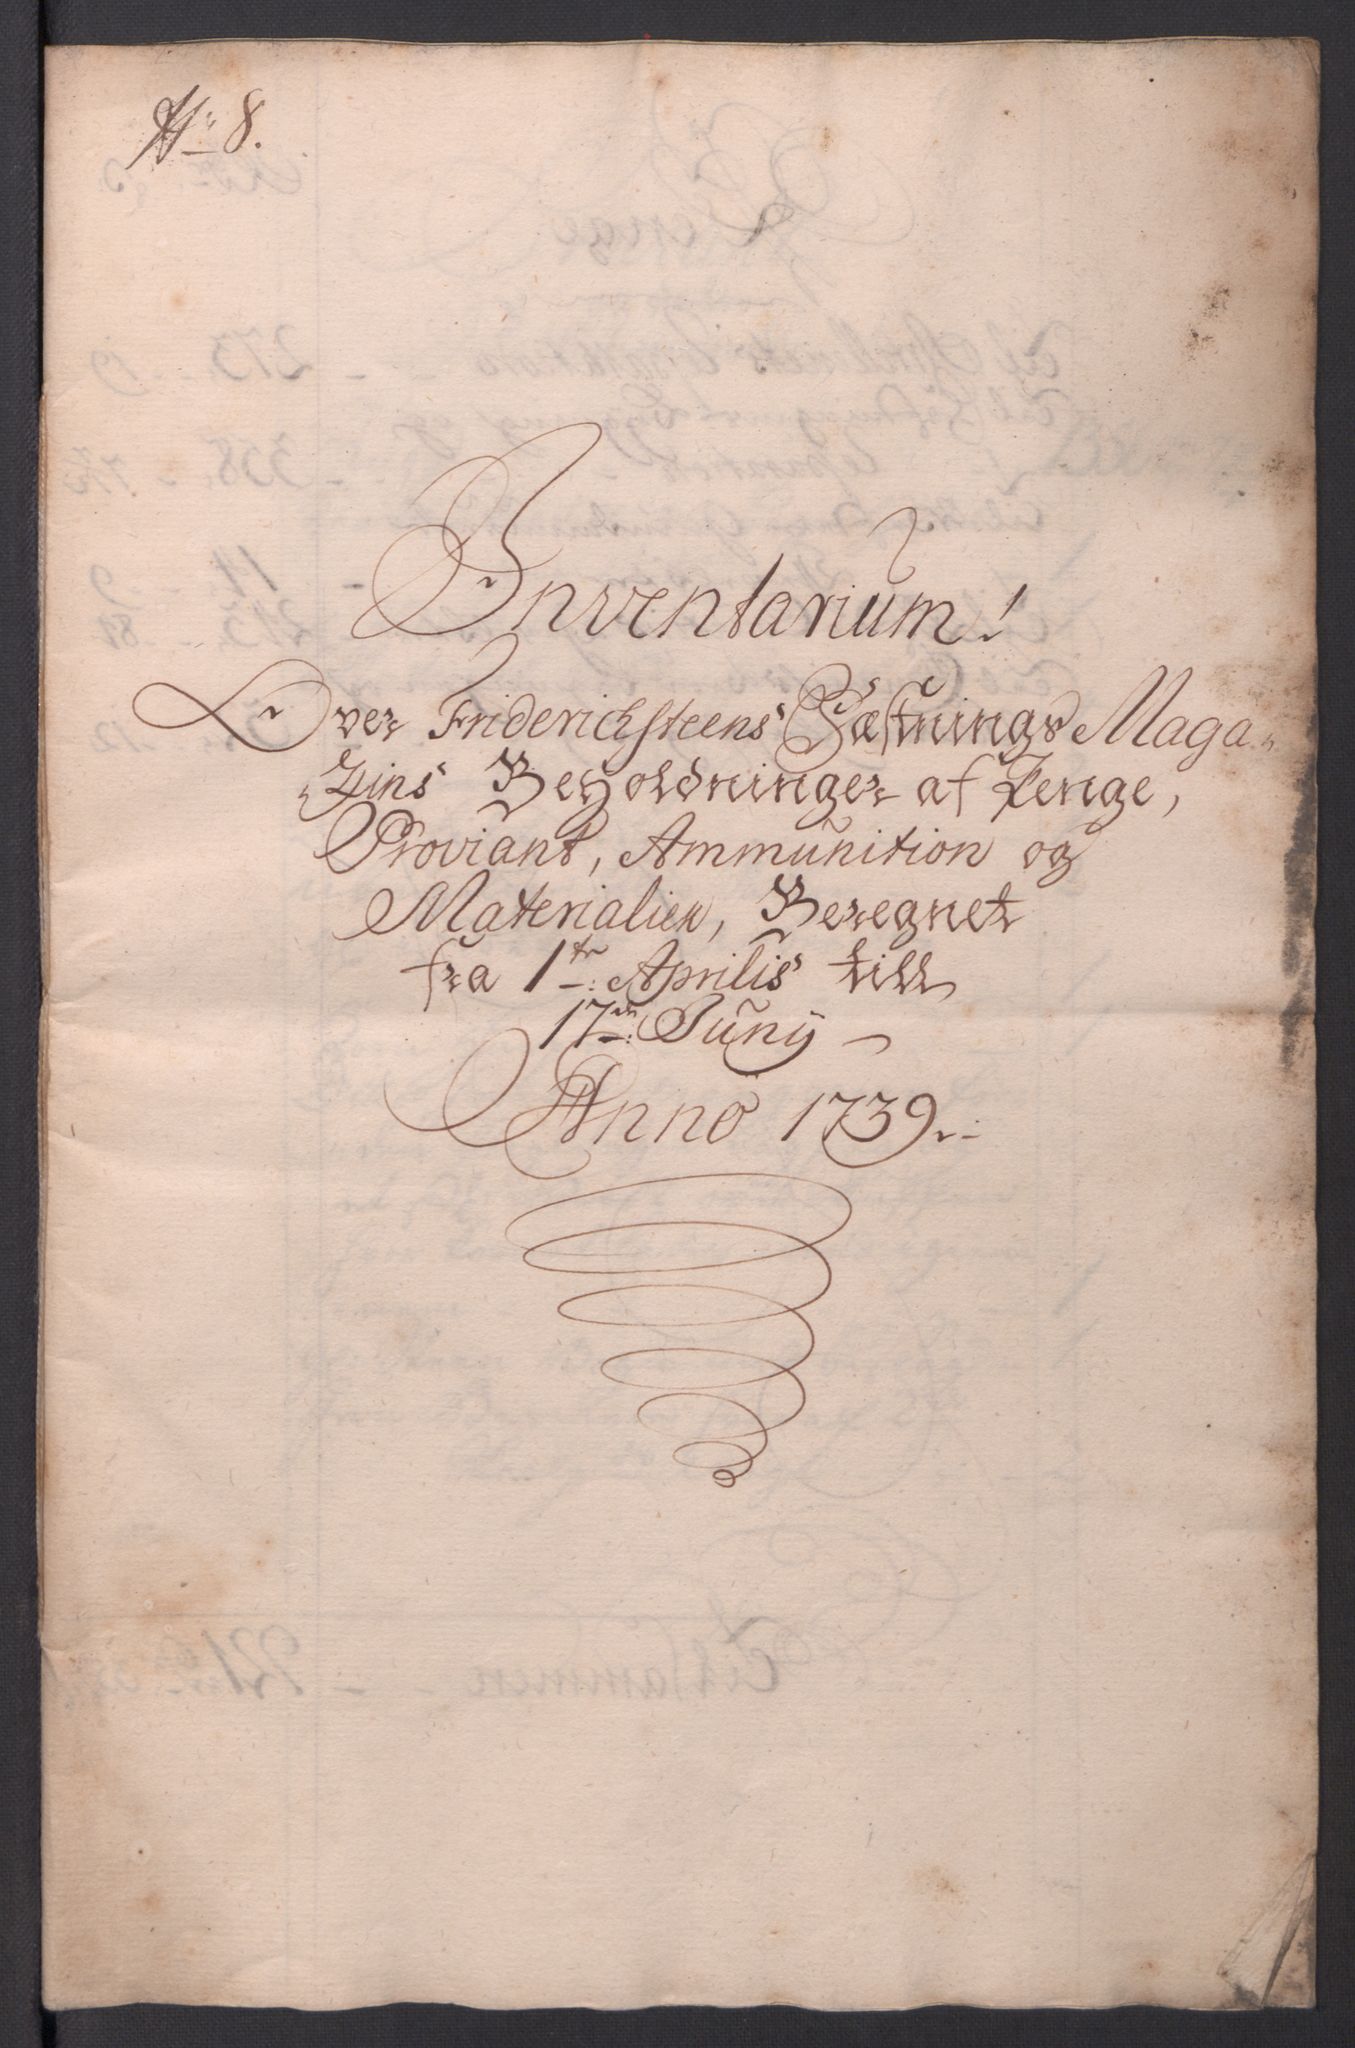 No 8.
Inventarium!
Over Friderichsteens Fæstnings Maga-
zins Beholdninger af Penge,
Proviant, Ammunition og
Materialier, Beregnet
fra 1te Aprilis till
17de Juny
Anno 1739.